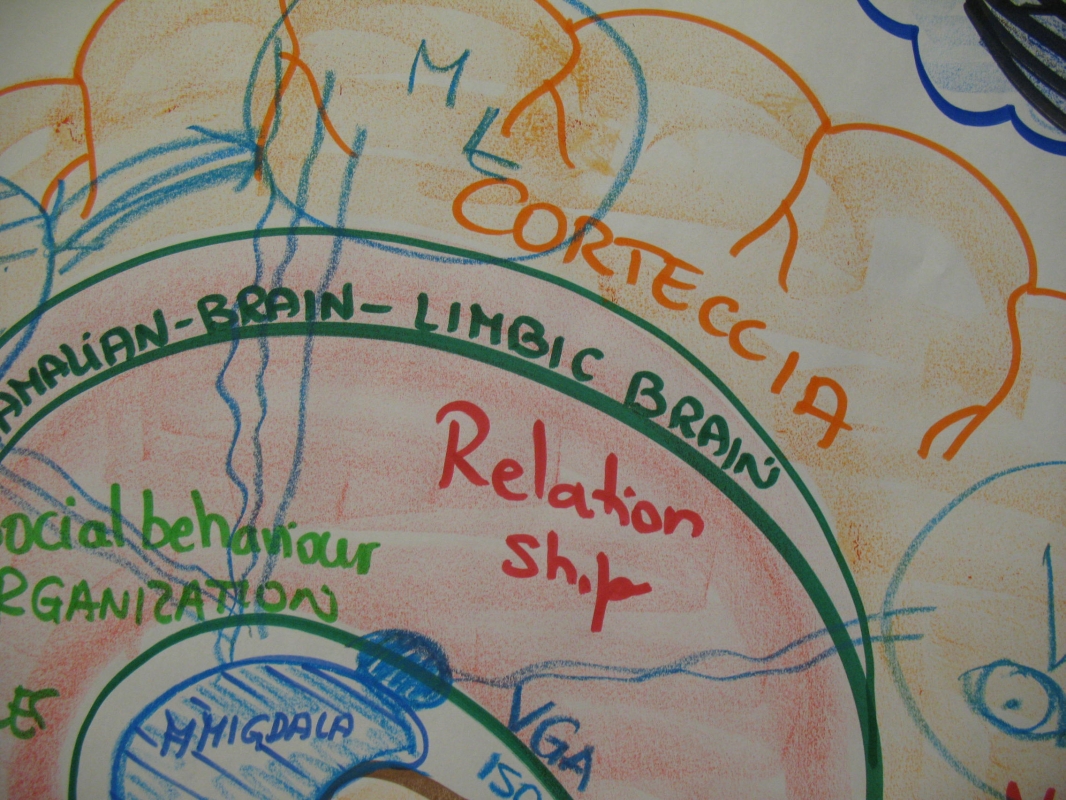 M
L
CORTECCIA
AMALIAN-BRAIN-LIMBIC BRAIN
Relation
ship
social behaviour
RGANIZATION
A'MIGDALA
VGA
ISO